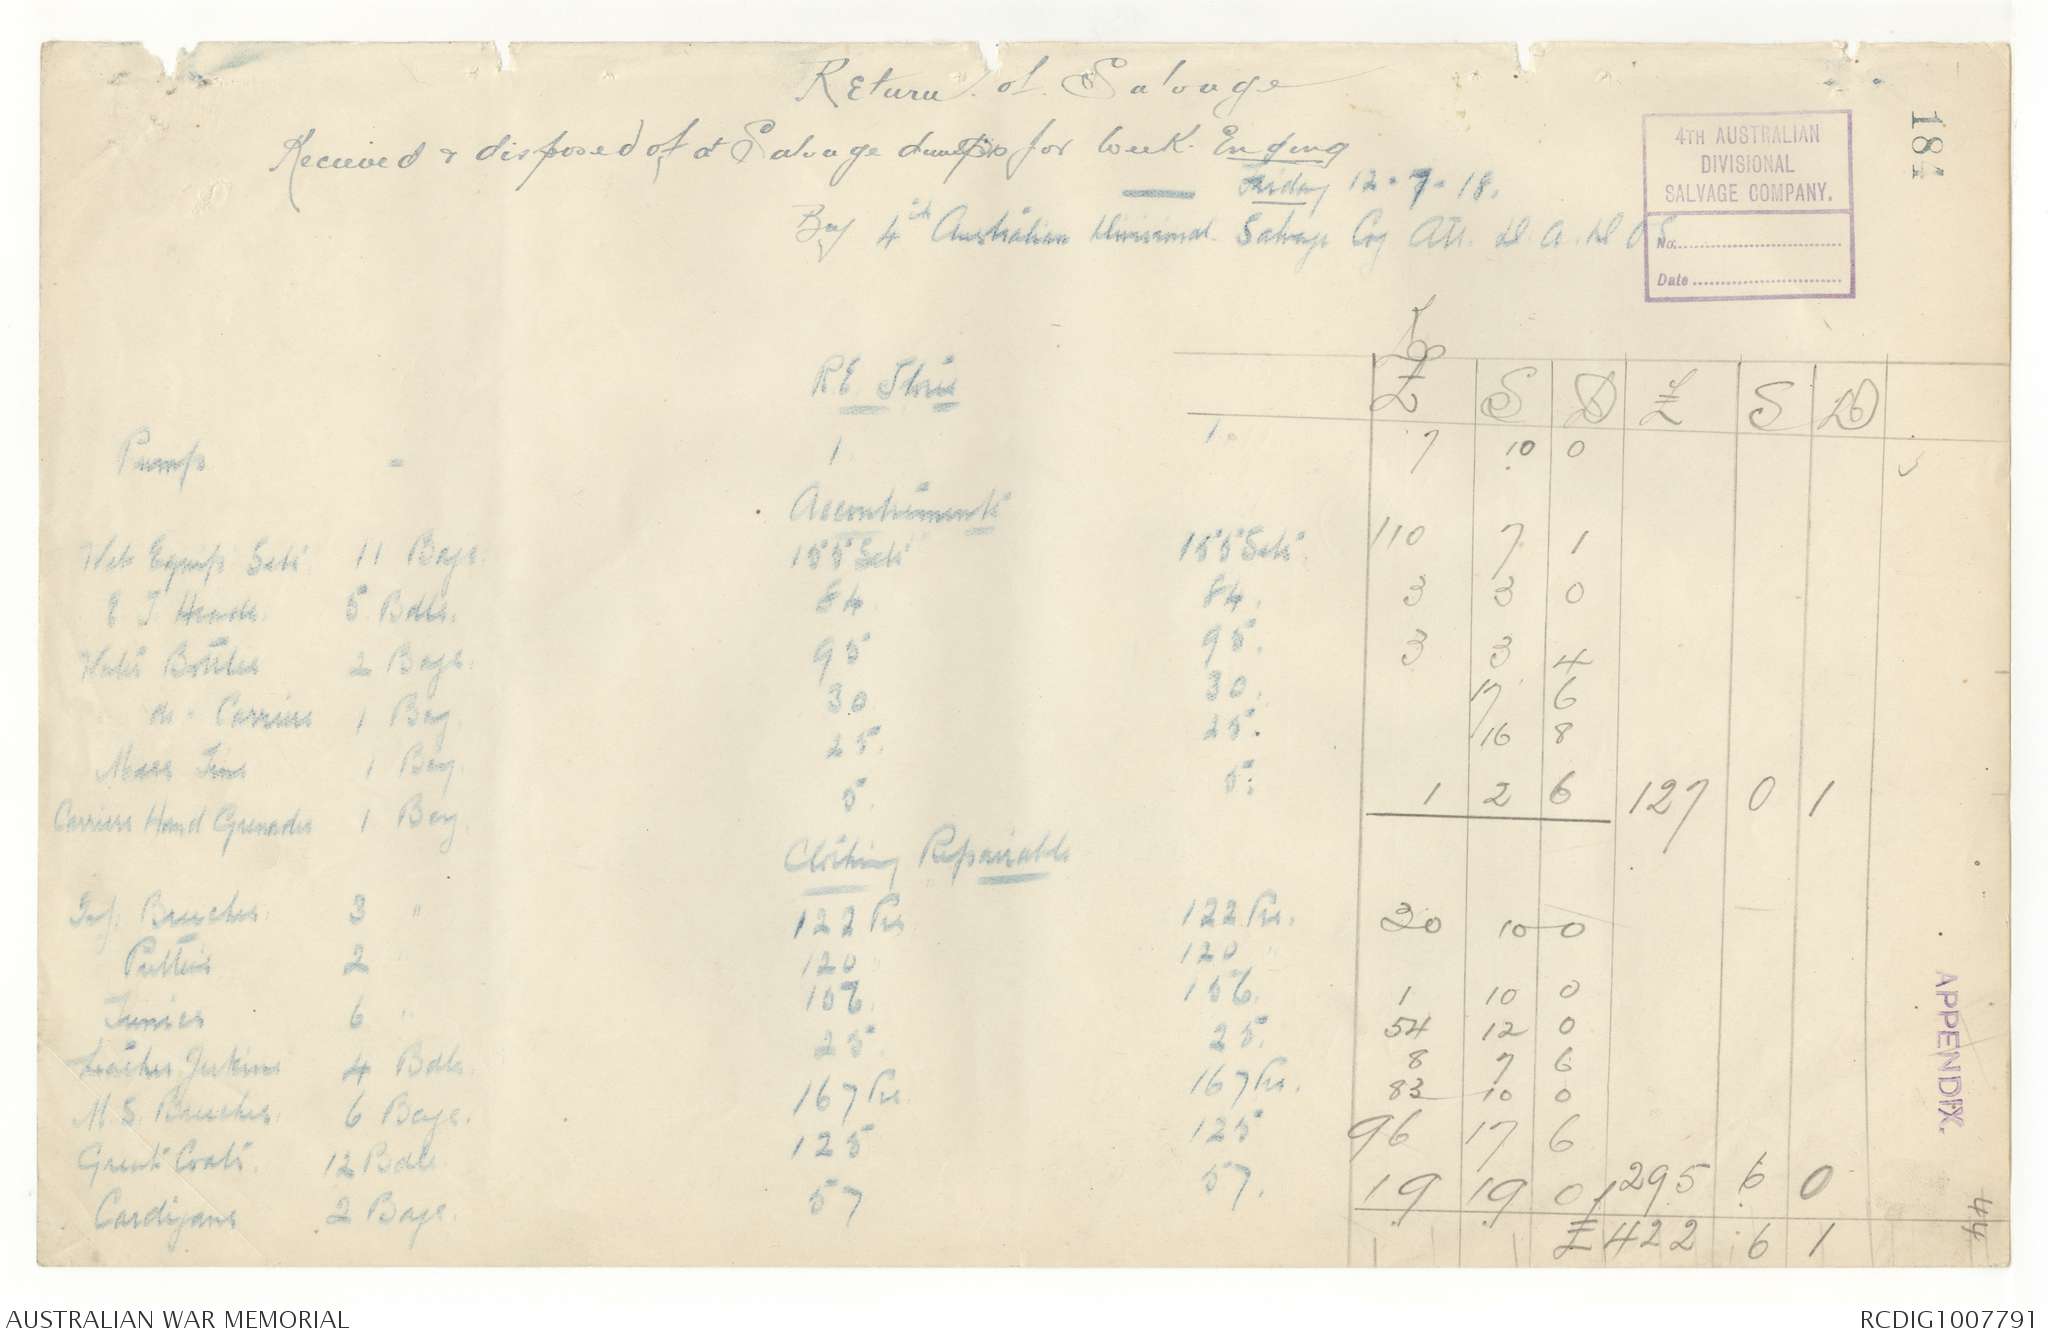 Return of Salvage
Received & disposed of at Salvage dumps for Week Ending
Friday 12-7-18.
By 4th Australian Divisional Salvage Coy Att. D.A.D.O.S
4TH AUSTRALIAN
DIVISIONAL
SALVAGE COMPANY.
No.
Date
184
R.E. Stores
£ S D £ S D
Pumps - 1 1. 7 10 0
Accoutrements
Web Equip Sets 11 Bags. 155 Sets 155 Sets. 110 7 1
E T Heads. 5 Bdls. 84 84. 3 3 0
Water Bottles 2 Bags. 95 95. 3 3 4
do - Carriers 1 Bag. 30 30. 17 6
Mess Tins 1 Bag. 25. 25. 16 8
Carriers Hand Grenades 1 Bag. 5. 5. 1 2 6 127 0 1
Clothing Repairable
Inf. Breeches 3 " 122 Prs 122 Prs. 30 10 0
Putties 2 " 120 " 120 " 1 10 0
Tunics 6 " 156. 156. 54 12 0
Leather Jerkins 4 Bdls. 25. 25. 8 7 6
M.S. Breeches 6 Bags. 167 Prs. 167 Prs. 83 10 0
Great Coats. 12 Bdls. 125 125 96 17 6
Cardigans 2 Bags. 57 57. 19 19 0 295 6 0
£422 6 1
APPENDIX.
44
AUSTRALIAN WAR MEMORIAL
RCDIG1007791